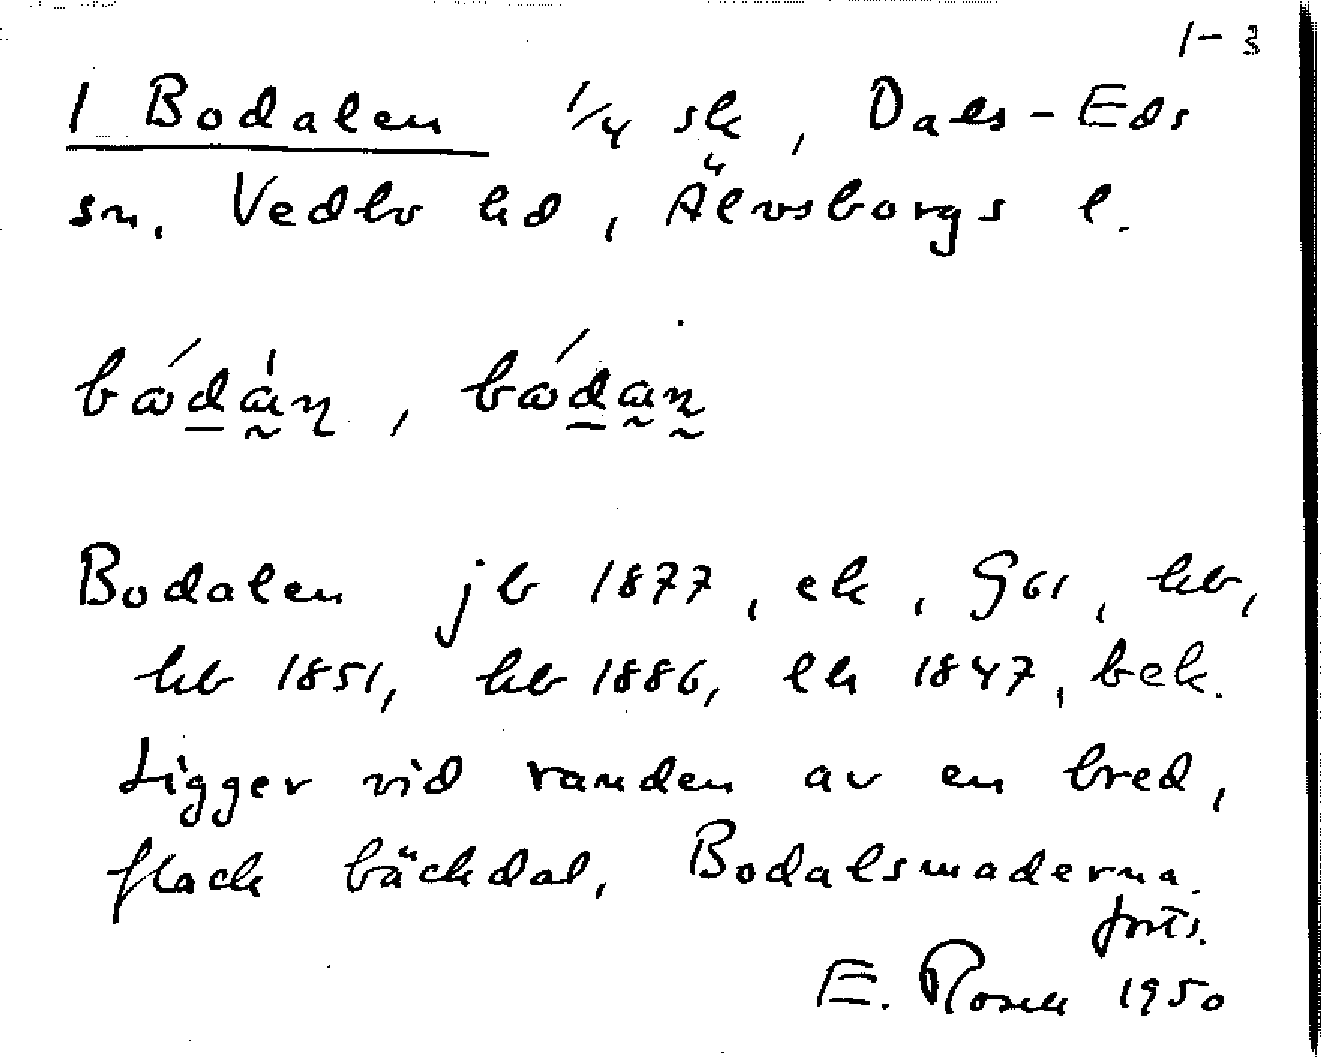 1-3
1 Bodalen 1/4 sk, Dals-Eds
sn. Vedbo hd, Älvsborgs l.
Bodalen jb 1877, ek, Gs1, hb,
hb 1851, hb 1886, lh 1847, bek.
Ligger vid randen av en bred,
flack bäckdal, Bodalsmaderna.
forts.
E. Rosell 1950